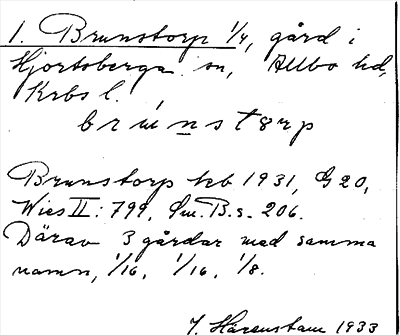 1. Brunstorp 1/4, gård i
Hjortsberga sn, Allbo hd,
Krbs l.
brúnstørp
Brunstorp kb 1931, G20,
Wies II: 799, Sm. B. s. 206.
Därav 3 gårdar med samma
namn, 1/16, 1/16, 1/8.
J. Härenstam 1933